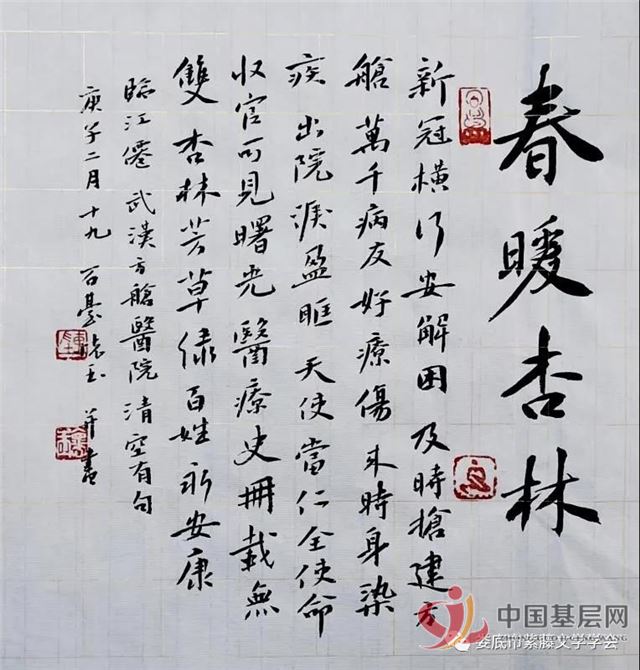 春暖杏林
新冠橫行安解困及時搶建方
艙萬千病友好療傷来時身染
疾出院淚盈眶天使當仁全使命
収官可見曙光醫療史冊載無
雙杏林芳草绿百姓永安康
臨江僊武漢方艙醫院清空有句
庚子二月十九 玉并書
中国基层网
娄底市紫藤文学学会